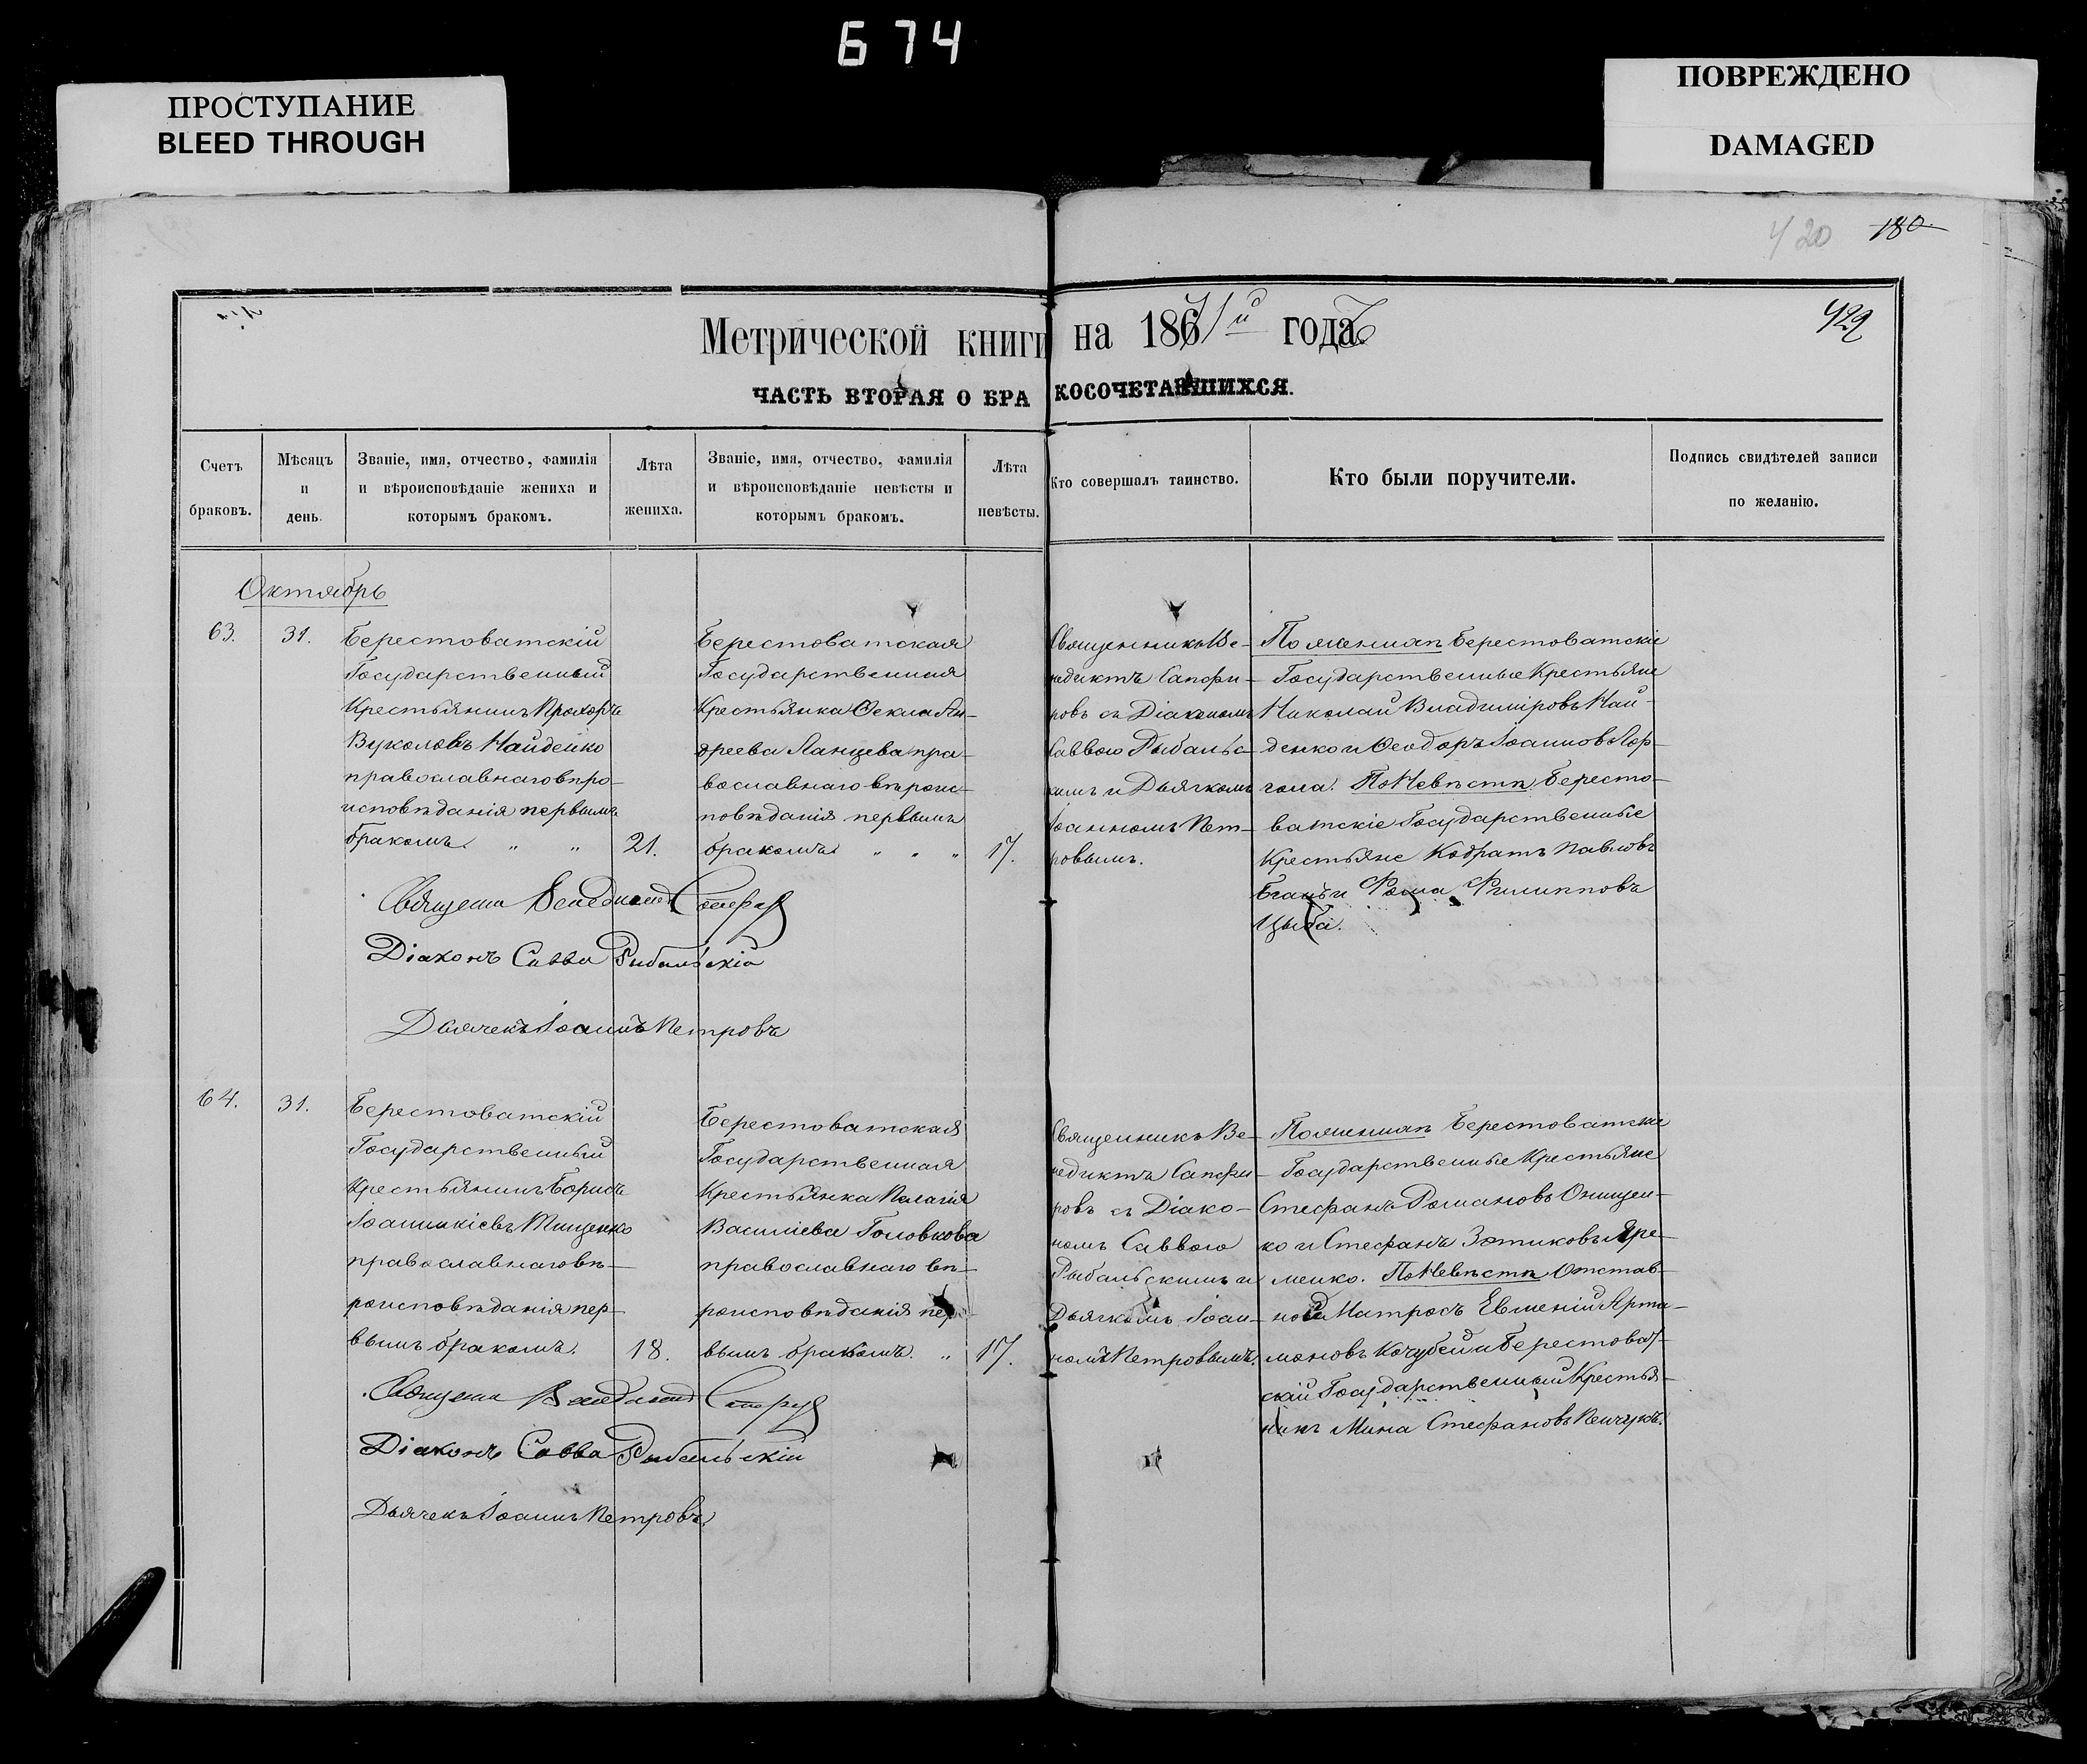 674
ПРОСТУПАНИЕ
BLEED THROUGH
ПОВРЕЖДЕНО
DAMAGED
420 180
429
Метрической книги на 1871й года.
ЧАСТЬ ВТОРАЯ О БРАКОСОЧЕТАВШИХСЯ.
Счетъ
браковъ.
Мѣсяцъ
и
день.
Званіе, имя, отчество, фамилія
и вѣроисповѣданіе жениха и
которымъ бракомъ.
Лѣта
жениха.
Званіе, имя, отчество, фамилія
и вѣроисповѣданіе невѣсты и
которымъ бракомъ.
Лѣта
невѣсты.
Кто совершалъ таинство.
Кто были поручители.
Подпись свидѣтелей записи
по желанію.
Октябрь
63. 31.
Берестоватскій
Государственный
Крестьянинъ Прохоръ
Вуколовъ Найденко
православнаго вѣро-
исповѣданія первымъ
бракомъ. " "
21.
Берестоватская
Государственная
Крестьянка Ѳекла Ан-
дреева Ланцева пра-
вославнаго вѣроис-
повѣданія первымъ
бракомъ. " " "
17.
Священникъ Ве-
недиктъ Сапфи-
ровъ съ Діакономъ
Саввою Рыбальс-
кимъ и Дьячкомъ
Іоанномъ Пет-
ровымъ.
По женихѣ Берестоватскіе
Государственные Крестьяне
Николай Владиміровъ Най-
денко и Ѳеодоръ Іоанновъ
По Невѣстѣ Бересто-
ватскіе Государственные
Крестьяне Кодратъ Павловъ
и Фома Филипповъ
Цыба.
Священ Венедиктъ Сапфир
Діаконъ Савва Рыбальскій
Дьячекъ Іоаннъ Петровъ
64. 31.
Берестоватскій
Государственный
Крестьянинъ Борисъ
Іоанникіевъ Тищенко
православнаго вѣ-
роисповѣданія пер-
вымъ бракомъ.
18.
Берестоватская
Государственная
Крестьянка Пелагія
Василіева Головкова
православнаго вѣ-
роисповѣданія пер-
вымъ бракомъ. "
17.
Священникъ Ве-
недиктъ Сапфи-
ровъ съ Діако-
номъ Саввою
Рыбальскимъ и
Дьячкомъ Іоан-
номъ Петровымъ.
По женихѣ Берестоватскіе
Государственные Крестьяне
Стефанъ Романовъ Онищен-
ко и Стефанъ Зотиковъ Яре-
менко. По Невѣстѣ Отстав-
ной Матросъ Евменій Арта-
моновъ Кочубей и Берестоват-
скій Государственный Крестья-
нинъ Мина Стефановъ
Священ Венедиктъ Сапфир
Діаконъ Савва Рыбальскій
Дьячекъ Іоаннъ Петровъ.